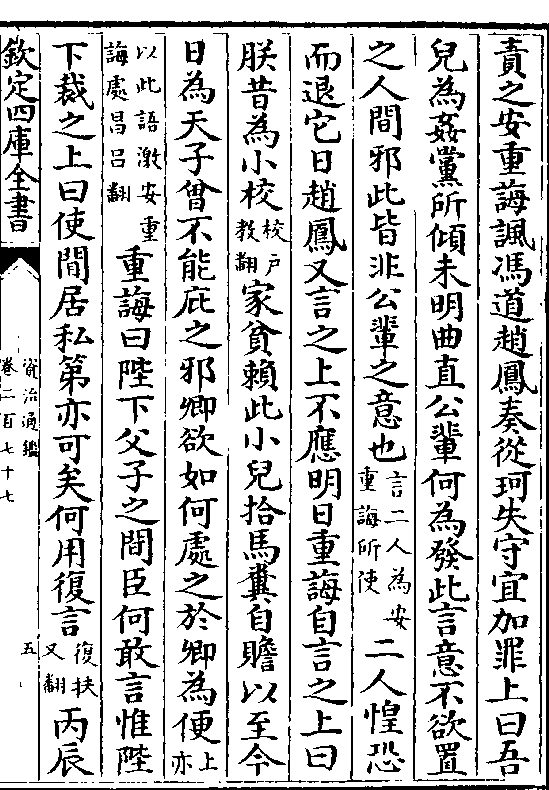 責之安重誨諷馮道趙鳳奏從珂失守宜加罪上曰吾
兒為姦黨所傾未明曲直公輩何為發此言意不欲置
之人間邪此皆非公輩之意也言二人為安重誨所使二人惶恐
而退它日趙鳳又言之上不應明日重誨自言之上曰
朕昔為小校校户教翻家貧賴此小兒拾馬糞自贍以至今
日為天子曾不能庇之邪卿欲如何處之於卿為便上亦
以此語激安重誨處昌吕翻重誨曰陛下父子之間臣何敢言惟陛
下裁之上曰使閒居私第亦可矣何用復言復扶又翻丙辰
欽定四庫全書
資治通鑑
卷二百七十七
五